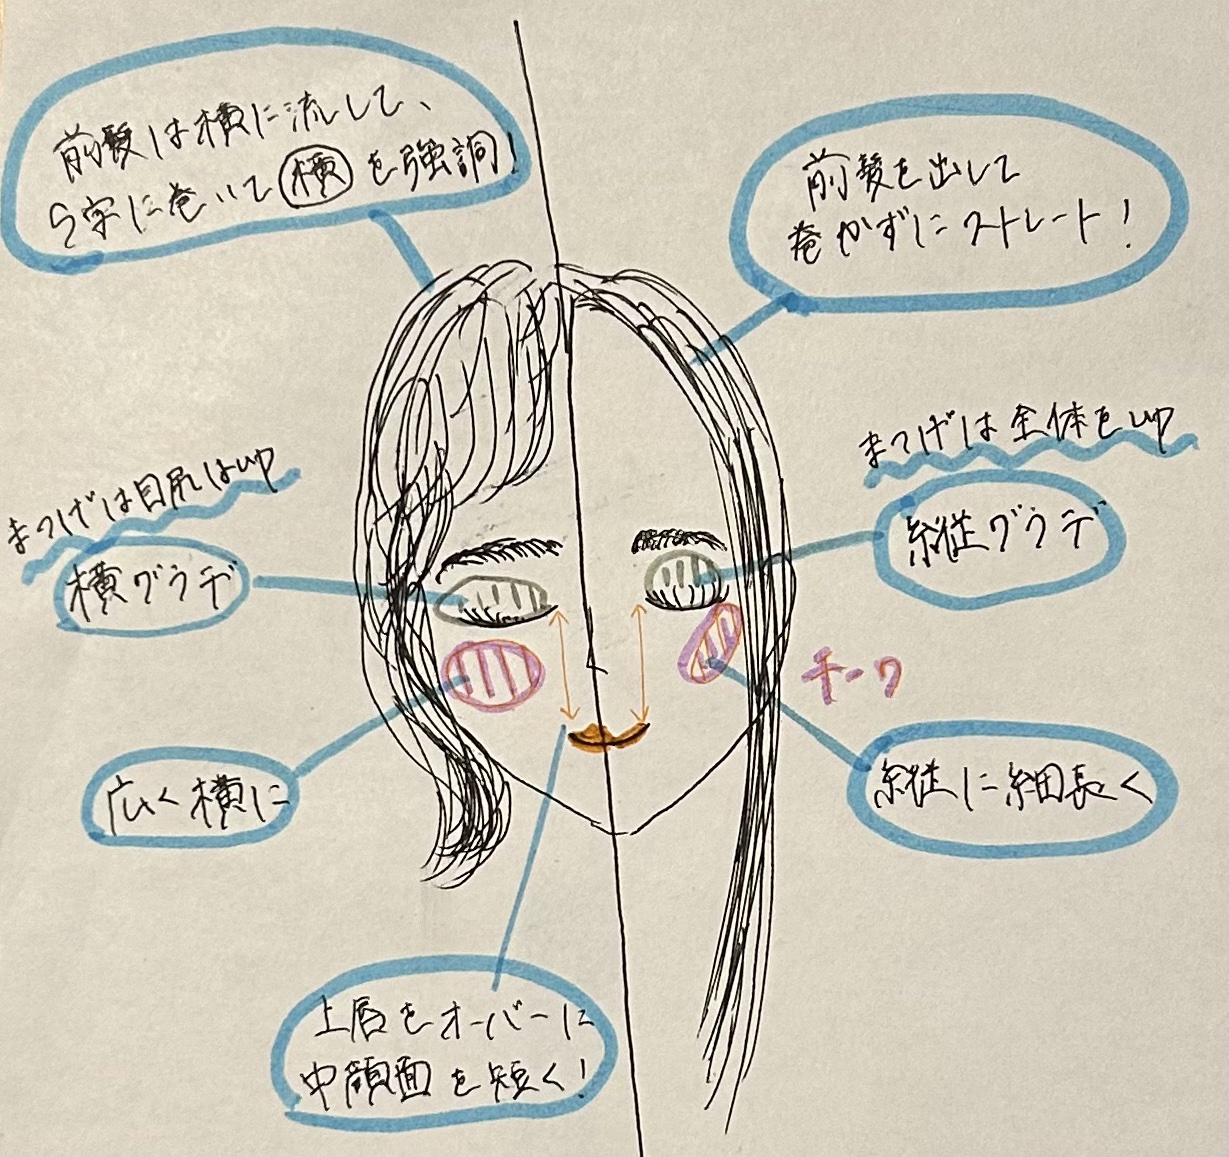 前髪は横に流して、
S字に巻いて横を強調!
前髪を出して
巻かずにストレート!
まつげは目尻はゆ
横グラデ
まつげは全体をゆ
縦グラデ
チーク
広く横に
縦に細長く
上唇をオーバーに
中顔面を短く!